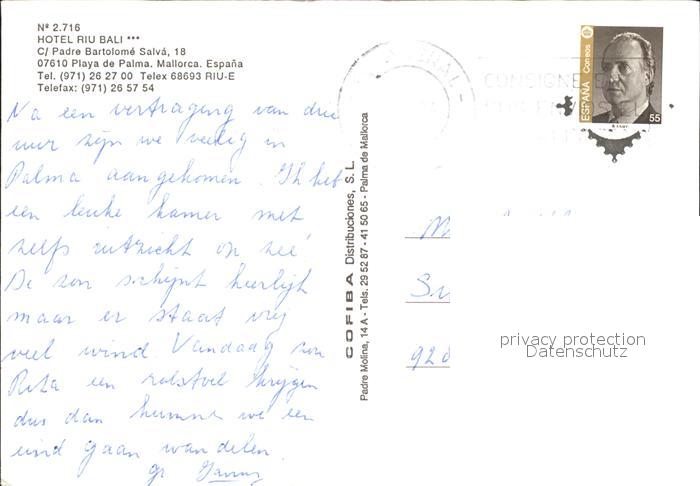 Nº 2.716
HOTEL RIU BALI ***
C/ Padre Bartolomé Salvá, 18
07610 Playa de Palma. Mallorca. España
Tel. (971) 26 27 00 Telex 68693 RIU-E
Telefax: (971) 26 57 54
Na een vertraging van drie
uur zijn we veilig in
Palma aangekomen. Ik heb
een leuke kamer met
zelfs uitzicht op zee!
De zon schijnt heerlijk
maar er staat vrij
veel wind. Vandaag zou
Rita een rolstoel krijgen
dus dan kunnen we een
eind gaan wandelen.
gr
COFIBA Distribuciones, S. L.
Padre Molina, 14 A - Tels. 29 52 87 - 41 50 65 - Palma de Mallorca
ESPAÑA Correos
55
CONSIGNE
privacy protection
Datenschutz